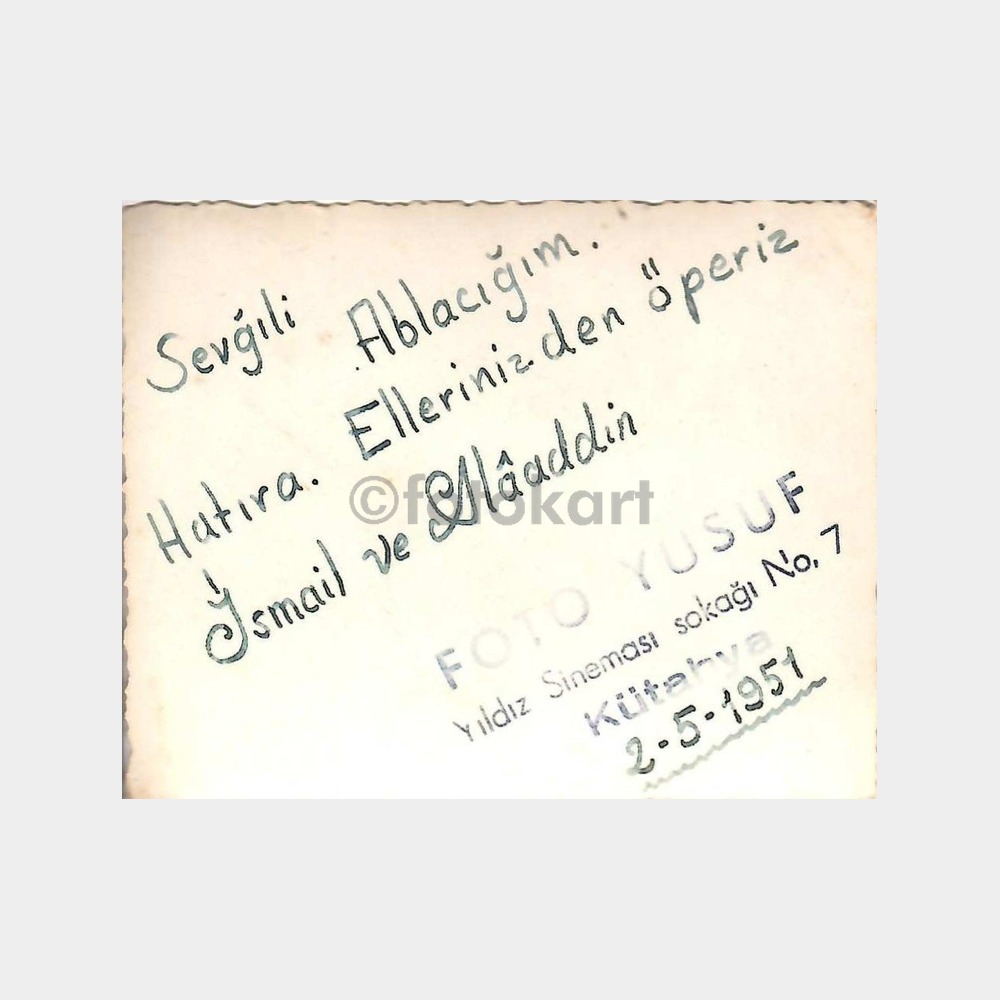 Sevğili Ablacığım.
Hatıra. Ellerinizden öperiz
İsmail ve Alâaddin
©fotokart
FOTO YUSUF
Yıldız Sineması sokağı No. 7
Kütahya
2-5-1951